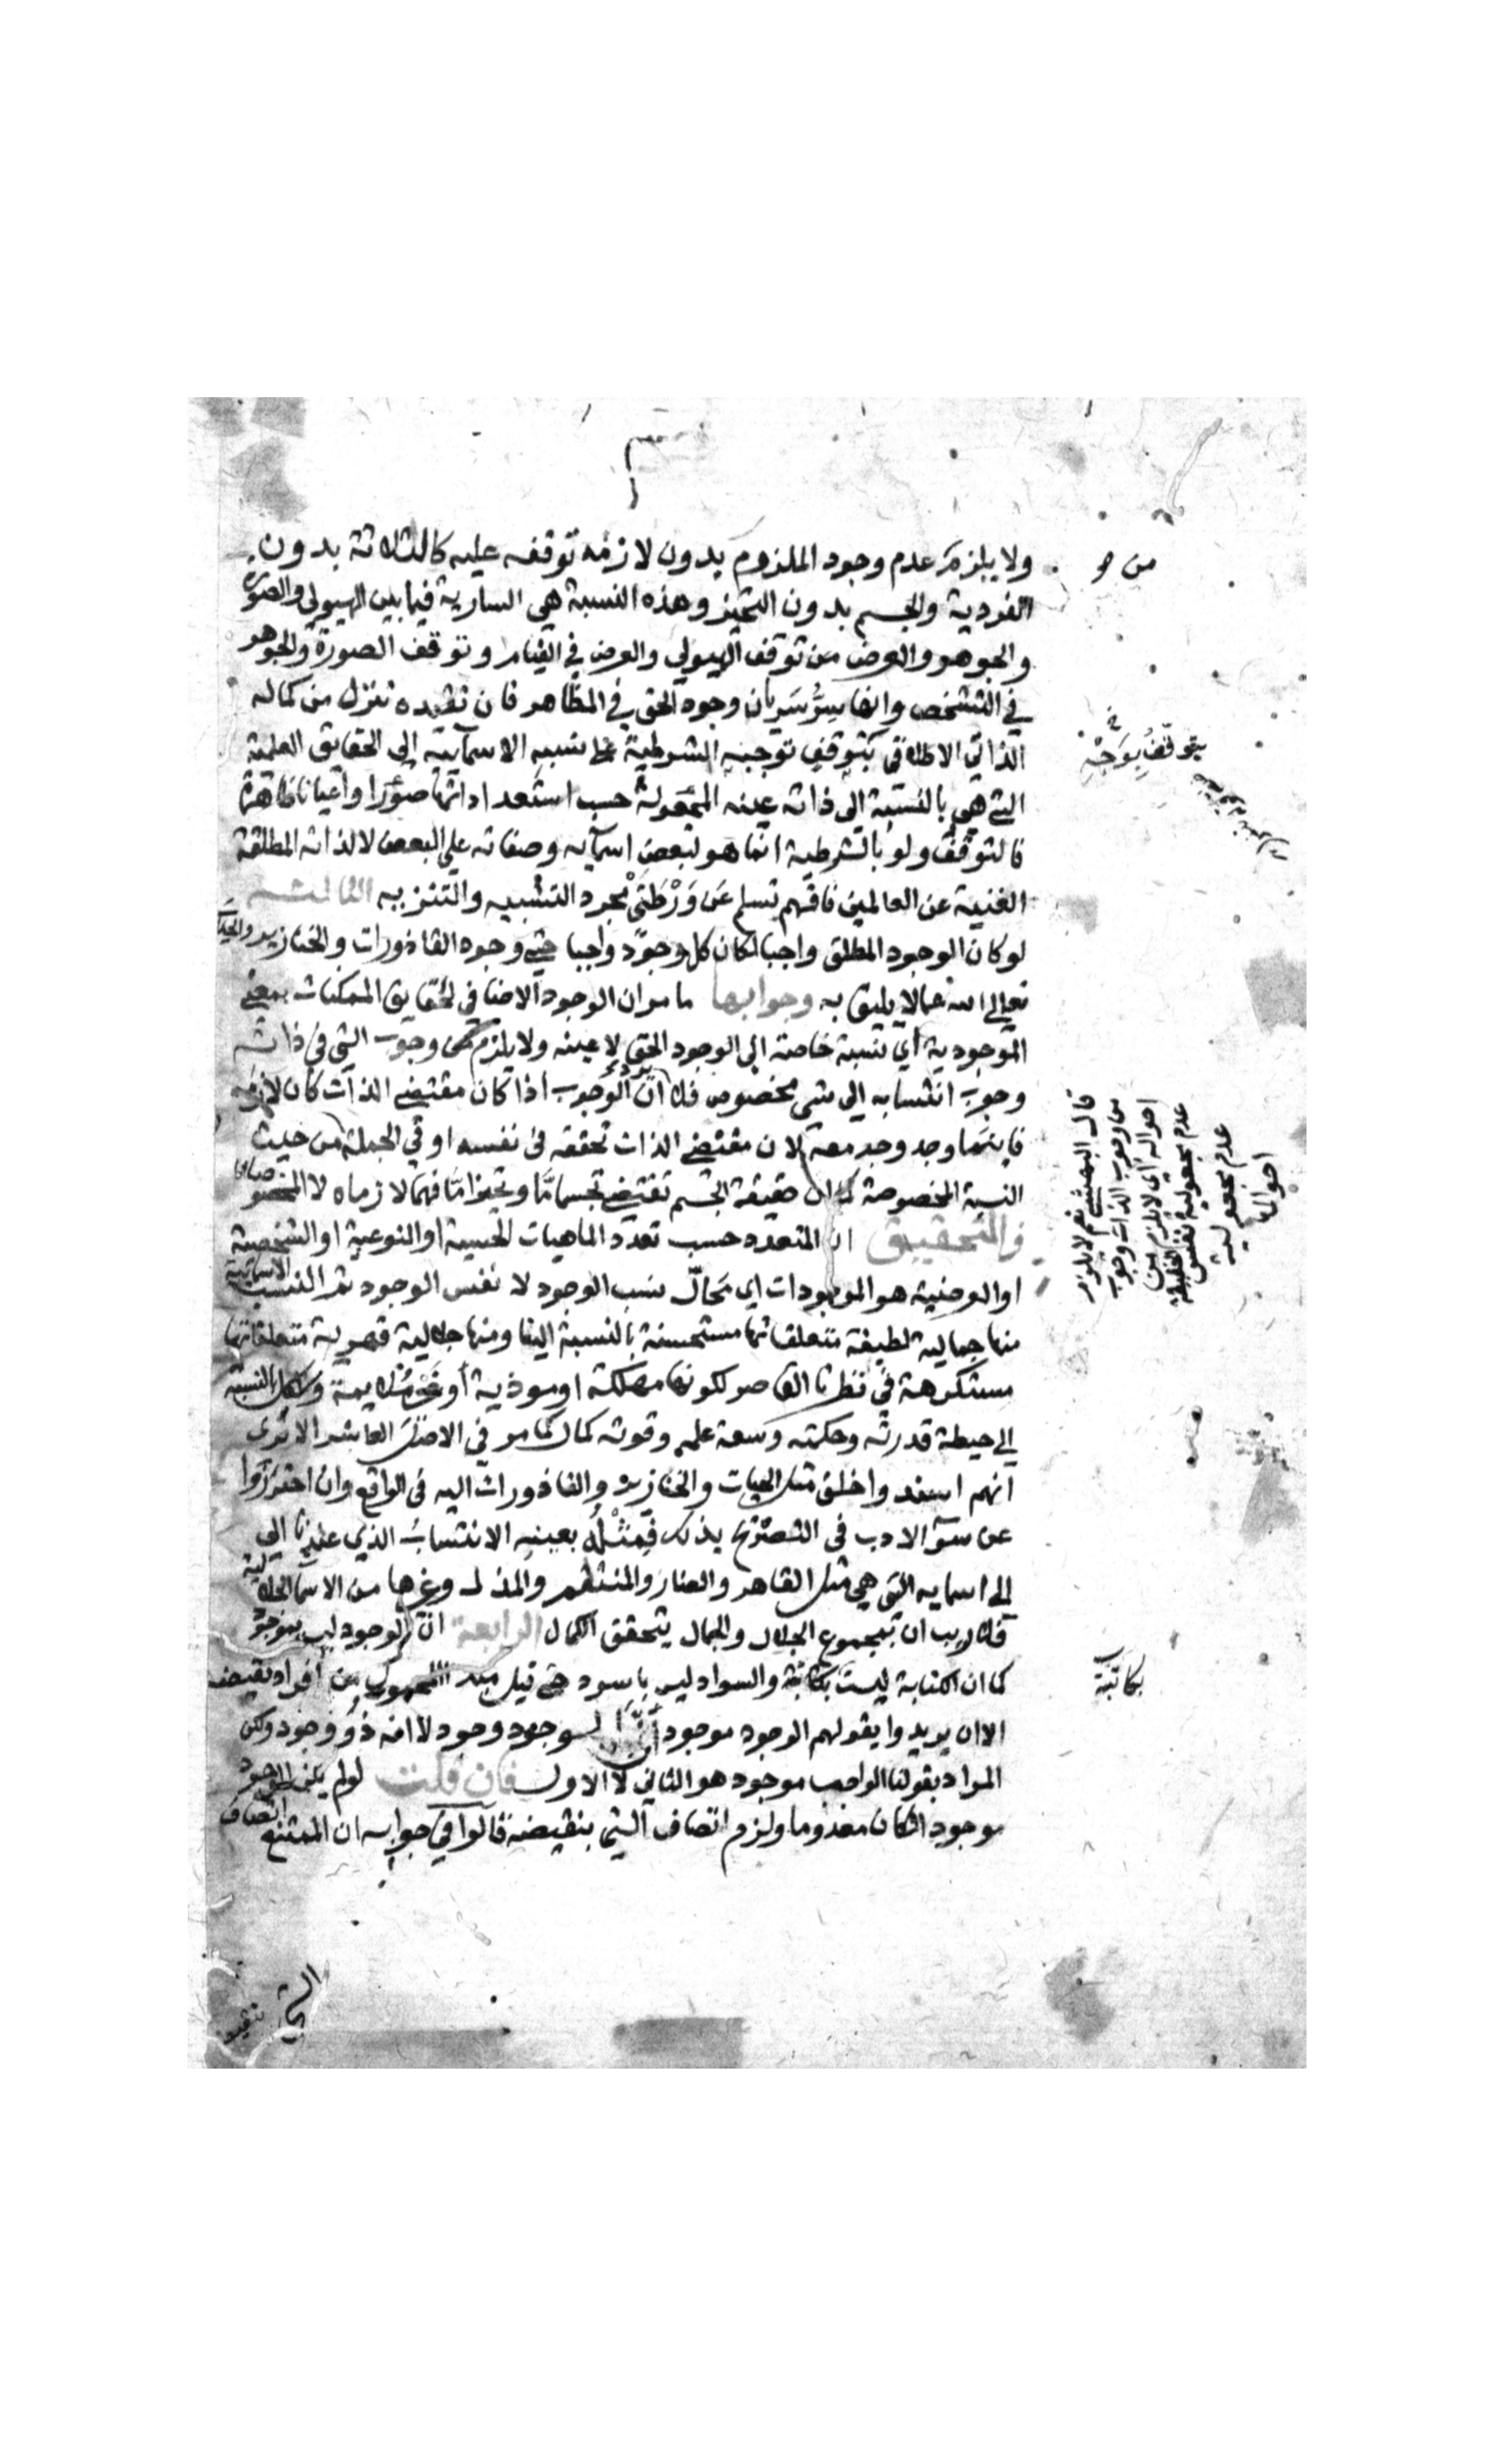 ولا يلزم عدم وجود الملزوم بدون لازمه توقفه عليه كالثلاثة بدون
الفردية والجسم بدون التحيز وهذه النسبة هي السارية فيما بين الهيولى والصورة
والجوهر والعرض من توقف الهيولي والعرض في القيام وتوقف الصورة والجوهر
في التشخص وانها سر سريان وجود الحق في المظاهر فان تقيده تنزل من كماله
الذاتي الاطلاقي بتوقف توجبه الشرطية على نسبه الاسمآئية الى الحقايق العلمية
التي هي بالنسبة الى ذاته عينه المجعولة حسب استعداداتها صورا واعيانا ظاهرة
فالتوقف ولو بالشرطية انما هو لبعض اسمآيه وصفاته على البعض لا لذاته المطلقة
الغنية عن العالمين فافهم تسلم عن ورطتي مجرد التشبيه والتنزيه الثالثة
لو كان الوجود المطلق واجبا لكان كل وجود واجبا حتى وجود القاذورات والخنازير
تعالى الله عما لا يليق به وجوابها ما مر ان الوجود الاضافي لحقايق الممكنات بمعنى
الموجودية اي نسبة خاصة الى الوجود الحق لا عينه ولا يلزم من وجوب الشي في ذاته
وجوب انتسابه الى شي مخصوص فلا يرد ان الوجوب اذا كان مقتضى الذات كان لازمه
فاينما وجد وجد معه لان مقتضى الذات تحققه في نفسه او في الجملة من حيث
النسبة المخصوصة كما ان حقيقة الجسم تقتضي تجسما ما وتحيزا ما فهما لازماه لا المخصوصان
والتحقيق ان المتعدد حسب تعدد الماهيات الجنسية او النوعية او الشخصية
او العرضية هو الموجودات اي محال نسب الوجود لا نفس الوجود ثم النسب الاسمائية
منها جمالية لطيفة متعلقاتها مستحسنة بالنسبة الينا ومنها جلالية قهرية متعلقاتها
مستكرهة في نظرنا القاصر لكونها مهلكة او موذية او غير ملايمة والكل بالنسبة
الى حيطة قدرته وحكمته وسعة علمه وقوته كمال كما مر في الاصل العاشر الا ترى
انهم اسندوا خلق مثل الحيات والخنازير والقاذورات اليه في الواقع وان احترزوا
عن سوء الادب في التصريح بذلك فمثله بعينه الانتساب الذي عندنا الى
الى اسمايه التي هي مثل القاهر والضار والمنتقم والمذل وغيرها من الاسما الجلالية
فلا ريب ان بمجموع الجلال والجمال يتحقق الكمال الرابعة ان الوجود ليس بموجود
كما ان الكتابة ليست بكاتبة والسواد ليس باسود حتى قيل مبدء المحمول من افراد نقيضه
الا ان يريدوا بقولهم الوجود موجود ان الوجود وجود لا انه ذو وجود ولكن
المراد بقولنا الواجب موجود هو الثاني لا الاول فان قلت لو لم يكن الوجود
موجودا لكان معدوما ولزم اتصاف الشي بنقيضه قالوا في جوابه ان الممتنع اتصاف
الشي
من و
بتوقف توجه
قال المحشي نعم لا يلزم
من وجوب الذات وجوب
احواله اي لا يلزم من
عدم مجعولية نفس الحقيقة
عدم مجعولية
احوالها
بكاتبة